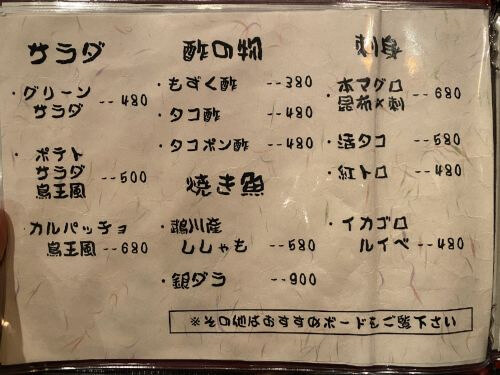 サラダ
・グリーン
サラダ --480
・ポテト
サラダ
鳥王風 --500
・カルパッチョ
鳥王風 --680
酢の物
・もずく酢 --380
・タコ酢 --480
・タコポン酢 --480
焼き魚
・鵡川産
ししゃも --580
・銀ダラ --900
刺身
・本マグロ
昆布〆刺 --680
・活タコ --580
・紅トロ --480
・イカゴロ
ルイベ --480
※その他はおすすめボードもご覧下さい